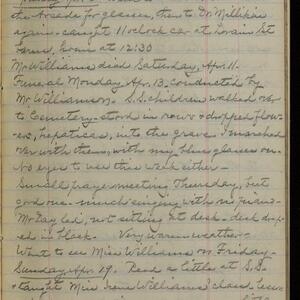 the Arcade for glasses, then to Dr. Millikin
again - caught 11 oclock car at Lorain St
barns, home at 12:30
Mr Williams died Saturday, Apr. 11.
Funeral Monday, Apr. 13. conducted by
Mr Williamson. S.S. children walked over
to Cemetery - stood in rows & dropped flow-
ers, hepaticas, into the grave. I marched
over with them, with my blue glasses on.
No eyes to use this week either -
Small prayer meeting Thursday, but
good one - much singing with no piano -
Mr Lay led, not sitting at desk - desk drap-
ed in black. Very warm weather.
Went to see Miss Williams on Friday -
Sunday Apr. 19. Read a little at S.S.
taught Miss Irene Williams' class